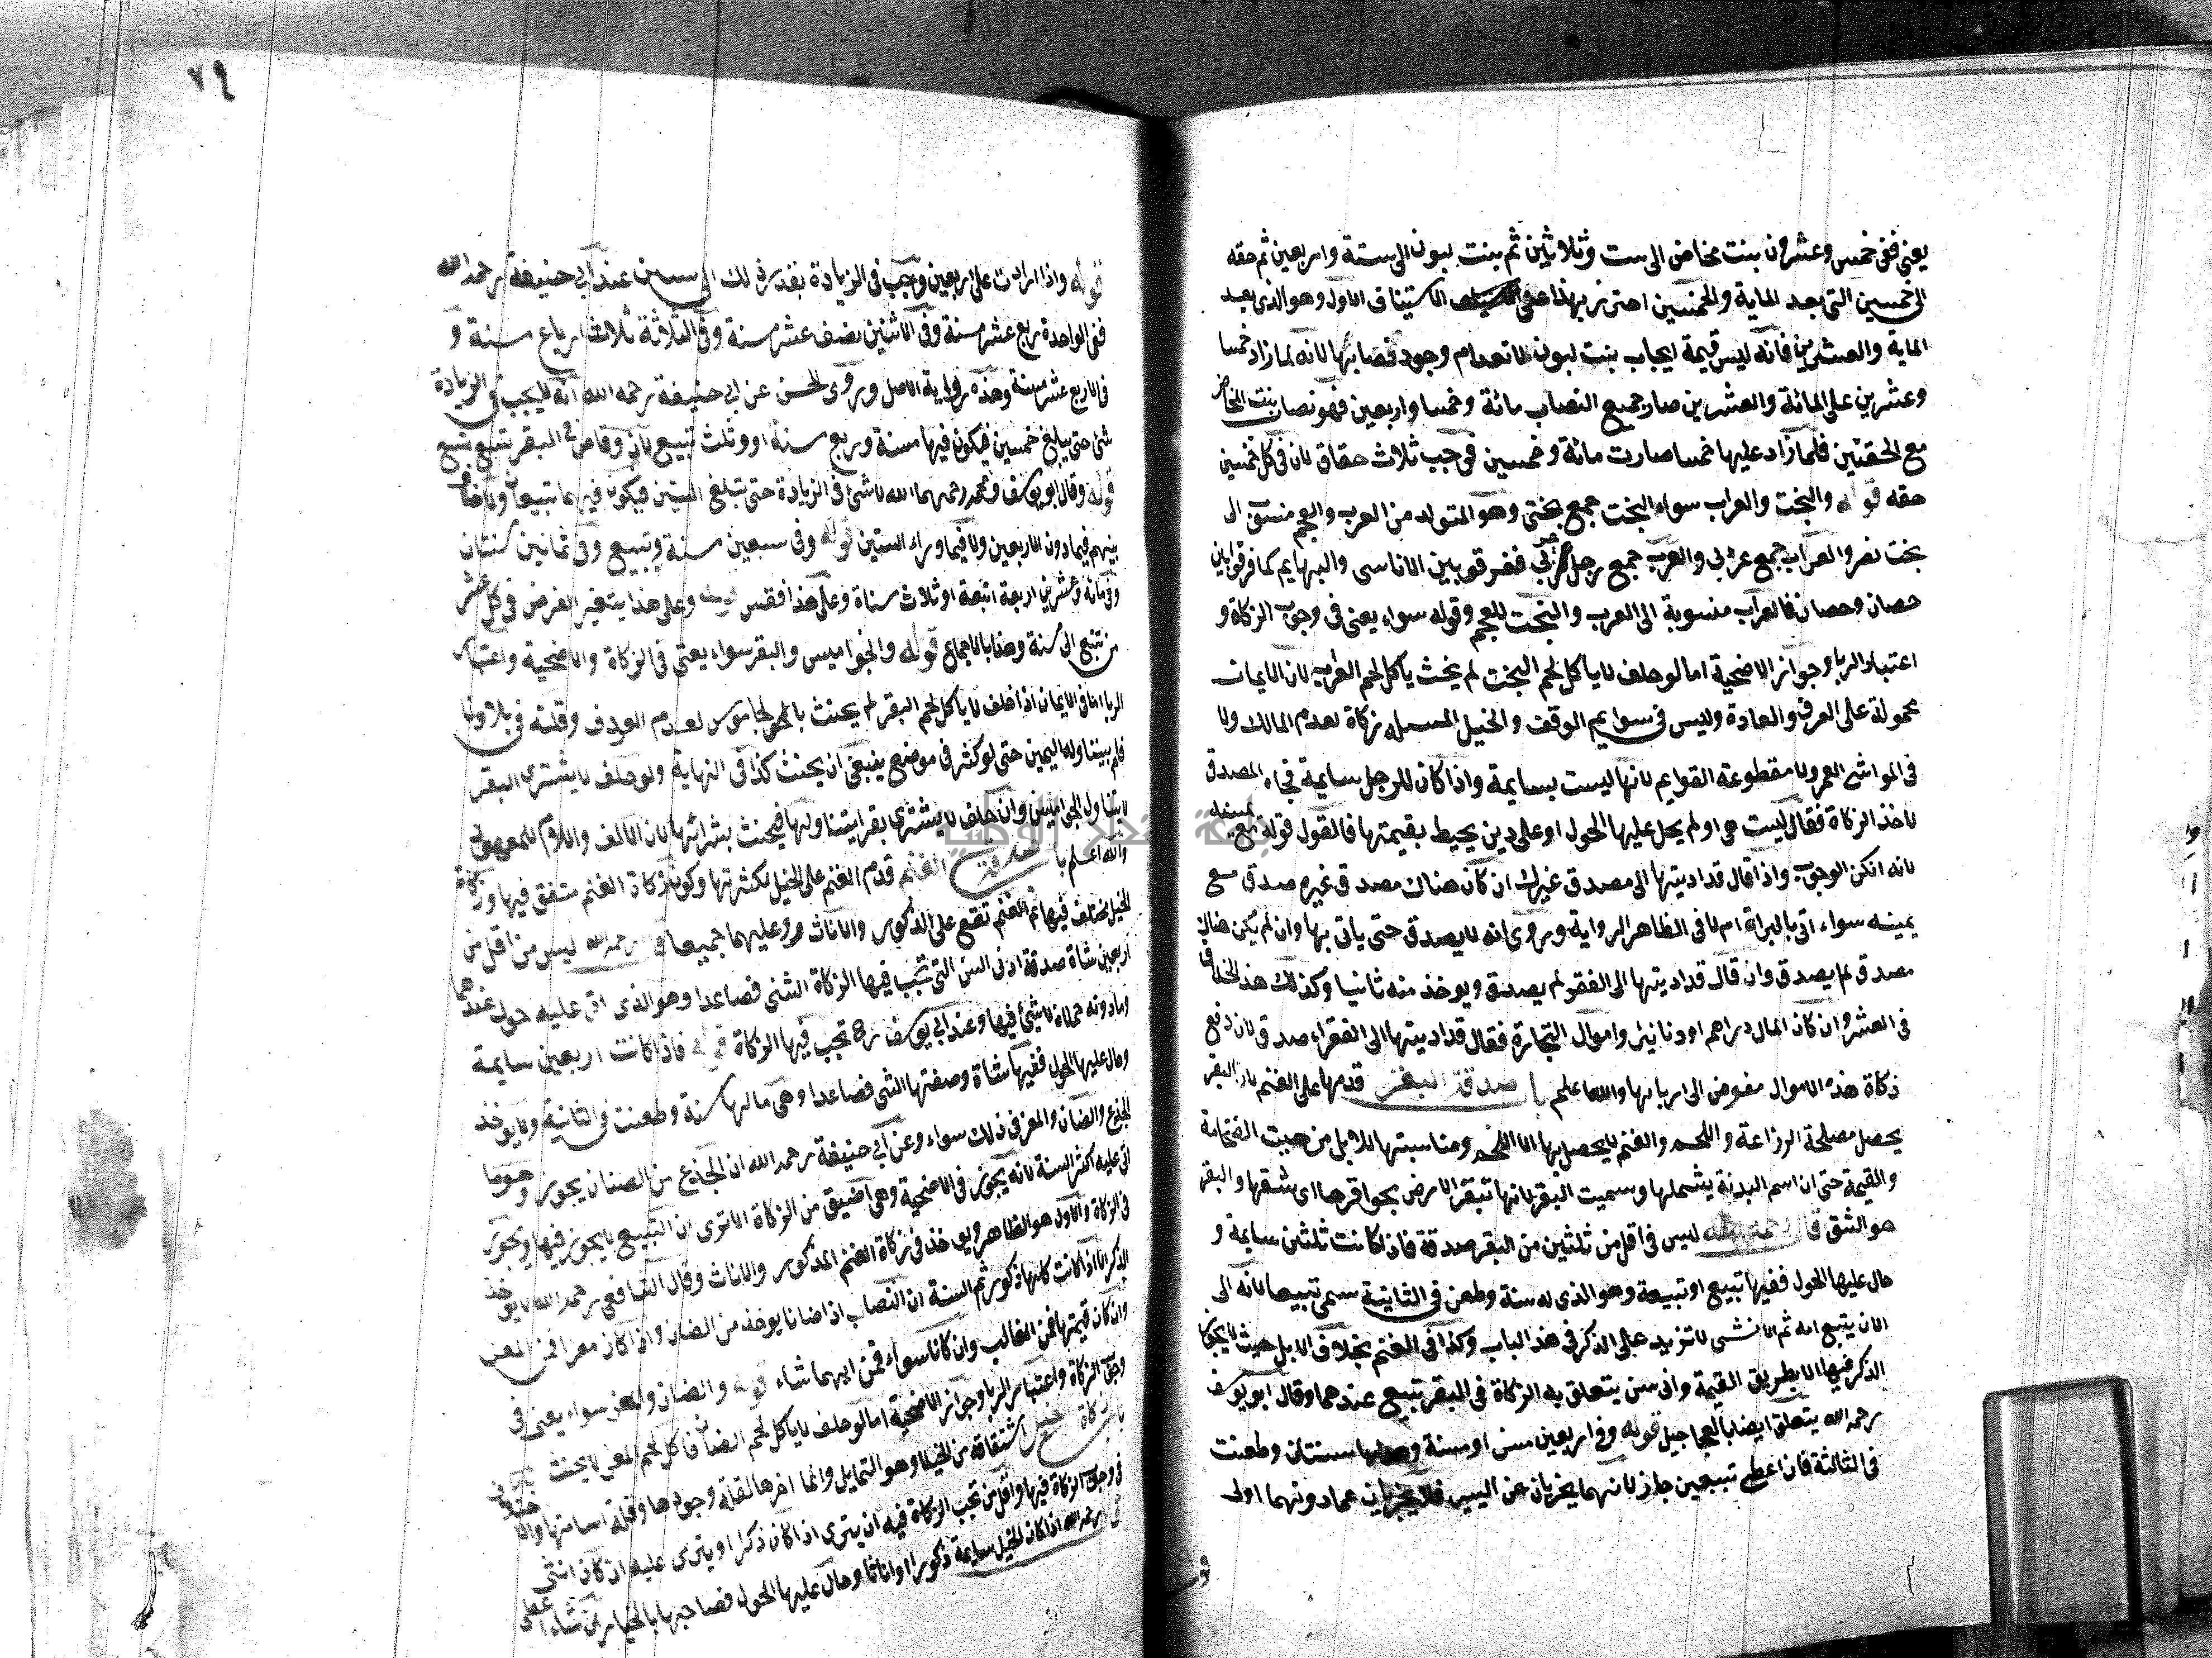 يعني ففي خمس وعشرين بنت مخاض الى ست وثلاثين ثم بنت لبون الى ستة واربعين ثم حقه
الى خمسين التي بعد الماية والخمسين احترز بهذا عن الاستيناف الاول وهو الذي بعد
الماية والعشرين فانه ليس فيه ايجاب بنت لبون لانعدام وجود نصابها لانه لما زاد خمسا
وعشرين على المائة والعشرين صار جميع النصاب مائة وخمسا واربعين فهو نصاب بنت المخاض
مع الحقتين فلما زاد عليها خمسا صارت مائة وخمسين فيجب ثلاث حقاق لان في كل خمسين
حقه قوله والبخت والعراب سواء البخت جمع بختي وهو المتولد من العرب والعجم منسوب الى
بخت نصر والعراب جمع عربي والعرب جمع رجل عربي ففرقوا بين الاناسي والبهايم كما فرقوا بين
حصان وحصان فالعراب منسوبة الى العرب والبخت للعجم وقوله سواء يعني في وجوب الزكاة و
اعتبار الربا وجواز الاضحية اما لو حلف لا ياكل لحم البخت لم يحنث ياكل لحم العراب لان الايمان
محمولة على العرف والعادة وليس في سوايم الوقف والخيل المسبله زكاة لعدم المالك ولا
في المواشي العمي ولا مقطوعة القوايم لانها ليست بسايمة واذا كان للرجل سايمة فجاء المصدق
لاخذ الزكاة فقال ليست هي او لم يحل عليها الحول او على دين يحيط بقيمتها فالقول قوله مع يمينه
لانه انكر الوجوب واذا قال قد اديتها الى مصدق غيرك ان كان هناك مصدق غيره صدق مع
يمينه سواء اتى بالبراة ام لا في الظاهر الرواية وروى انه لا يصدق حتى ياتي بها وان لم يكن هناك
مصدق لم يصدق وان قال قد اديتها الى الفقر لم يصدق ويوخذ منه ثانيا وكذلك هذ الخلاف
في العشر وان كان المال دراهم او دنانير او اموال التجارة فقال قد اديتها الى الفقراء صدق لان دفع
زكاة هذه الاموال مفوض الى اربابها والله اعلم باب صدقة البقر قدمها على الغنم لان البقر
يحصل مصلحة الزراعة واللحم والغنم لا يحصل بها الا اللحم ومناسبتها للابل من حيث الضخامة
والقيمة حتى ان اسم البدنة يشملها وسميت البقر لانها تبقر الارض بحوافرها اي تشقها والبقر
هو الشق قال رحمه الله ليس في اقل من ثلثين من البقر صدقة فاذا كانت ثلثين سايمة و
حال عليها الحول ففيها تبيع او تبيعة وهو الذي له سنة وطعن في الثانية سمى تبيعا لانه الى
الان يتبع امه ثم الانثى لا تزيد على الذكر في هذ الباب وكذا في الغنم بخلاف الابل حيث لا يجوز
الذكر فيها الا بطريق القيمة وادنى سن يتعلق به الزكاة في البقر تبيع عندهما وقال ابو يوسف
رحمه الله يتعلق ايضا بالعجاجيل قوله وفي اربعين مسن او مسنة سنتان وطعنت
في الثالثة فان اعطى تبيعين جاز لانهما يجزيان عن الستين فلان يجزيان عما دونهما اولى
٧٩
قوله واذا زادت على اربعين وجب في الزيادة بقدر ذلك الى ستين عند ابي حنيفة رحمه الله
ففي الواحدة ربع عشر مسنة وفي الاثنين نصف عشر مسنة وفي الثلاثة ثلاث ارباع مسنة و
في الاربع عشر مسنة وهذه رواية الاصل وروى الحسن عن ابي حنيفة رحمه الله انه لا يجب في الزيادة
شئ حتى يبلغ خمسين فيكون فيها مسنة وربع مسنة او وثلث تبيع
قوله وقال ابو يوسف ومحمد رحمهما الله لا شئ في الزيادة حتى تبلغ الستين فيكون فيهما تبيعان ولا خلاف
بينهم فيما دون الاربعين ولا فيما وراء الستين قوله وفي سبعين مسنة وتبيع وفي ثمانين مسنتان
وفي مائة وعشرين اربعة اتبعة او ثلاث مسناة وعلى هذا فقس قوله وعلى هذا يتغير الفرض في كل عشر
من تبيع الى مسنة وهذا بالاجماع قوله والجواميس والبقر سواء يعني في الزكاة والاضحية واعتبار
الربا اما في الايمان اذا حلف لا ياكل لحم البقر لم يحنث بالحم الجاموس لعدم العرف وقلته في بلادنا
فلم يتناوله اليمين حتى لو كثر في موضع ينبغي ان يحنث كذا في النهاية ولو حلف لا يشتري البقر
لا يتناول الجواميس وان حلف لا يشتري بقرا يتناولها فيحنث بشرائها لان الالف واللام للمعهود
والله اعلم باب صدقة الغنم قدم الغنم على الخيل لكثرتها وكون زكاة الغنم متفق فيها وزكاة
الخيل مختلف فيها ثم الغنم تقع على الذكور والاناث وعليهما جميعا قال رحمه الله ليس من اقل من
اربعين شاة صدقة ادنى السن التي تجب فيها الزكاة الثني فصاعدا وهو الذي اتى عليه حول عندهما
وما دونه حملان لا شئ فيها وعند ابي يوسف رح تجب فيها الزكاة قوله فاذا كانت اربعين سايمة
وحال عليها الحول ففيها شاة وصفتها الثني فصاعدا وهي ما لها سنة وطعنت في الثانية ولا يوخذ
الجذع والضان والمعز في ذلك سواء وعن ابي حنيفة رحمه الله ان الجذع من الضان يجوز وهو ما
اتى عليه اكثر السنة لانه يجوز في الاضحية وهي اضيق من الزكاة الا ترى ان التبيع لا يجوز فيها ويجوز
في الزكاة والاول هو الظاهر ويوخذ في زكاة الغنم الذكور والاناث وقال الشافعي رحمه الله لا يوخذ
الذكر الا اذا كانت كلها ذكور ثم السنة ان النصاب اذا ضانا يوخذ من الضان واذا كان معزا فمن المعز
وان كان قيمتها فمن الغالب وان كانا سواء فمن ايهما شاء قوله والضان والمعز سواء يعني في
وجوب الزكاة واعتبار الربا وجواز الاضحية اما لو حلف لا ياكل لحم الضان فاكل لحم المعز لا يحنث
باب زكاة الخيل اشتقاقه من الخيلا وهو التمايل وانما اخرها لقلة وجودها وقلة اسامتها
في وجوب الزكاة فيها واقل من تجب الزكاة فيه ان ينزى اذا كان ذكرا او ينزى عليه ان كان انثى
قال رحمه الله اذا كان الخيل سايمة ذكورا او اناثا وحال عليها الحول فصاحبها بالخيار ان شاء اعطى